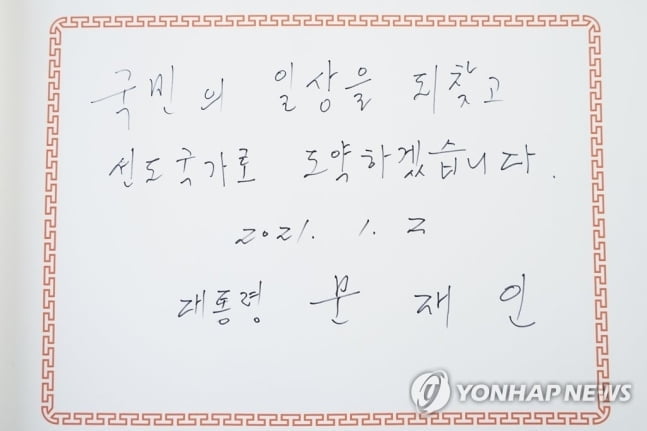 국민의 일상을 되찾고
선도국가로 도약하겠습니다.
2021. 1. 2
대통령 문 재 인
YONHAP NEWS